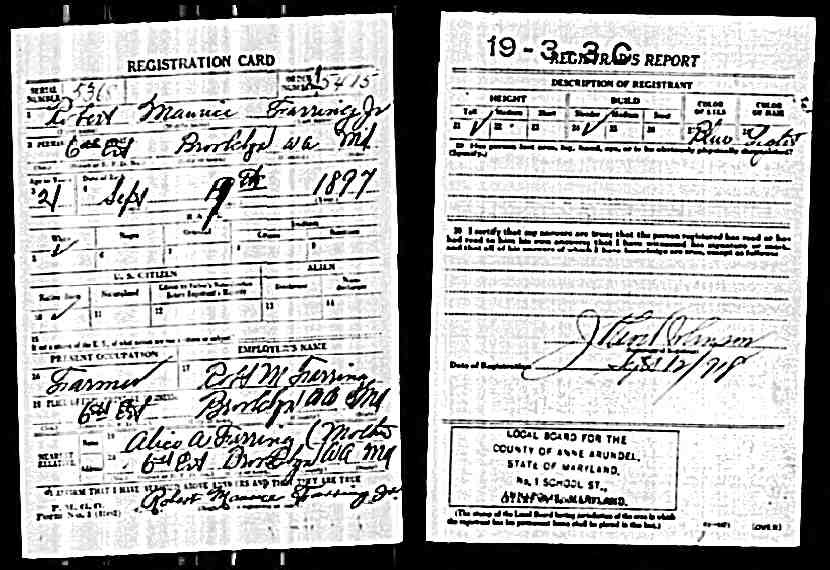 REGISTRATION CARD
SERIAL NUMBER
ORDER NUMBER 5415
1 Robert Maurice Farring Jr
6th Ext Brooklyn AA Md
Age in Years Date of Birth
21 Sept 19th 1897
White Negro Oriental Indian
5 6 7 8 9
U. S. CITIZEN ALIEN
Native Born Naturalized Declarant
10 11 12 13 14
15
PRESENT OCCUPATION EMPLOYER'S NAME
16 Farmer 17 Robt M Farring
6th Ext Brooklyn AA Md
NEAREST RELATIVE
Name 19 Alice A Farring (Mother
Address 20 6th Ext Brooklyn AA Md
I AFFIRM THAT I HAVE VERIFIED ABOVE ANSWERS AND THAT THEY ARE TRUE
P. M. G. O.
Form No. 1 (Red) Robert Maurice Farring Jr.
19-3-3 C
REGISTRAR'S REPORT
DESCRIPTION OF REGISTRANT
HEIGHT BUILD COLOR OF EYES COLOR OF HAIR
Tall Medium Short Slender Medium Stout
21 22 23 24 25 26 27 Blue 28 Light
29 Has person lost arm, leg, hand, eye, or is he obviously physically disqualified?
(Specify.)
30 I certify that my answers are true; that the person registered has read or has
had read to him his own answers; that I have witnessed his signature or mark,
and that all of his answers of which I have knowledge are true, except as follows:
Johnson
Date of Registration Sept 12/918
LOCAL BOARD FOR THE
COUNTY OF ANNE ARUNDEL,
STATE OF MARYLAND,
No. 1 SCHOOL ST.,
ANNAPOLIS, MARYLAND.
(The stamp of the Local Board having jurisdiction of the area in which
the registrant has his permanent home shall be placed in this box.)
(OVER)